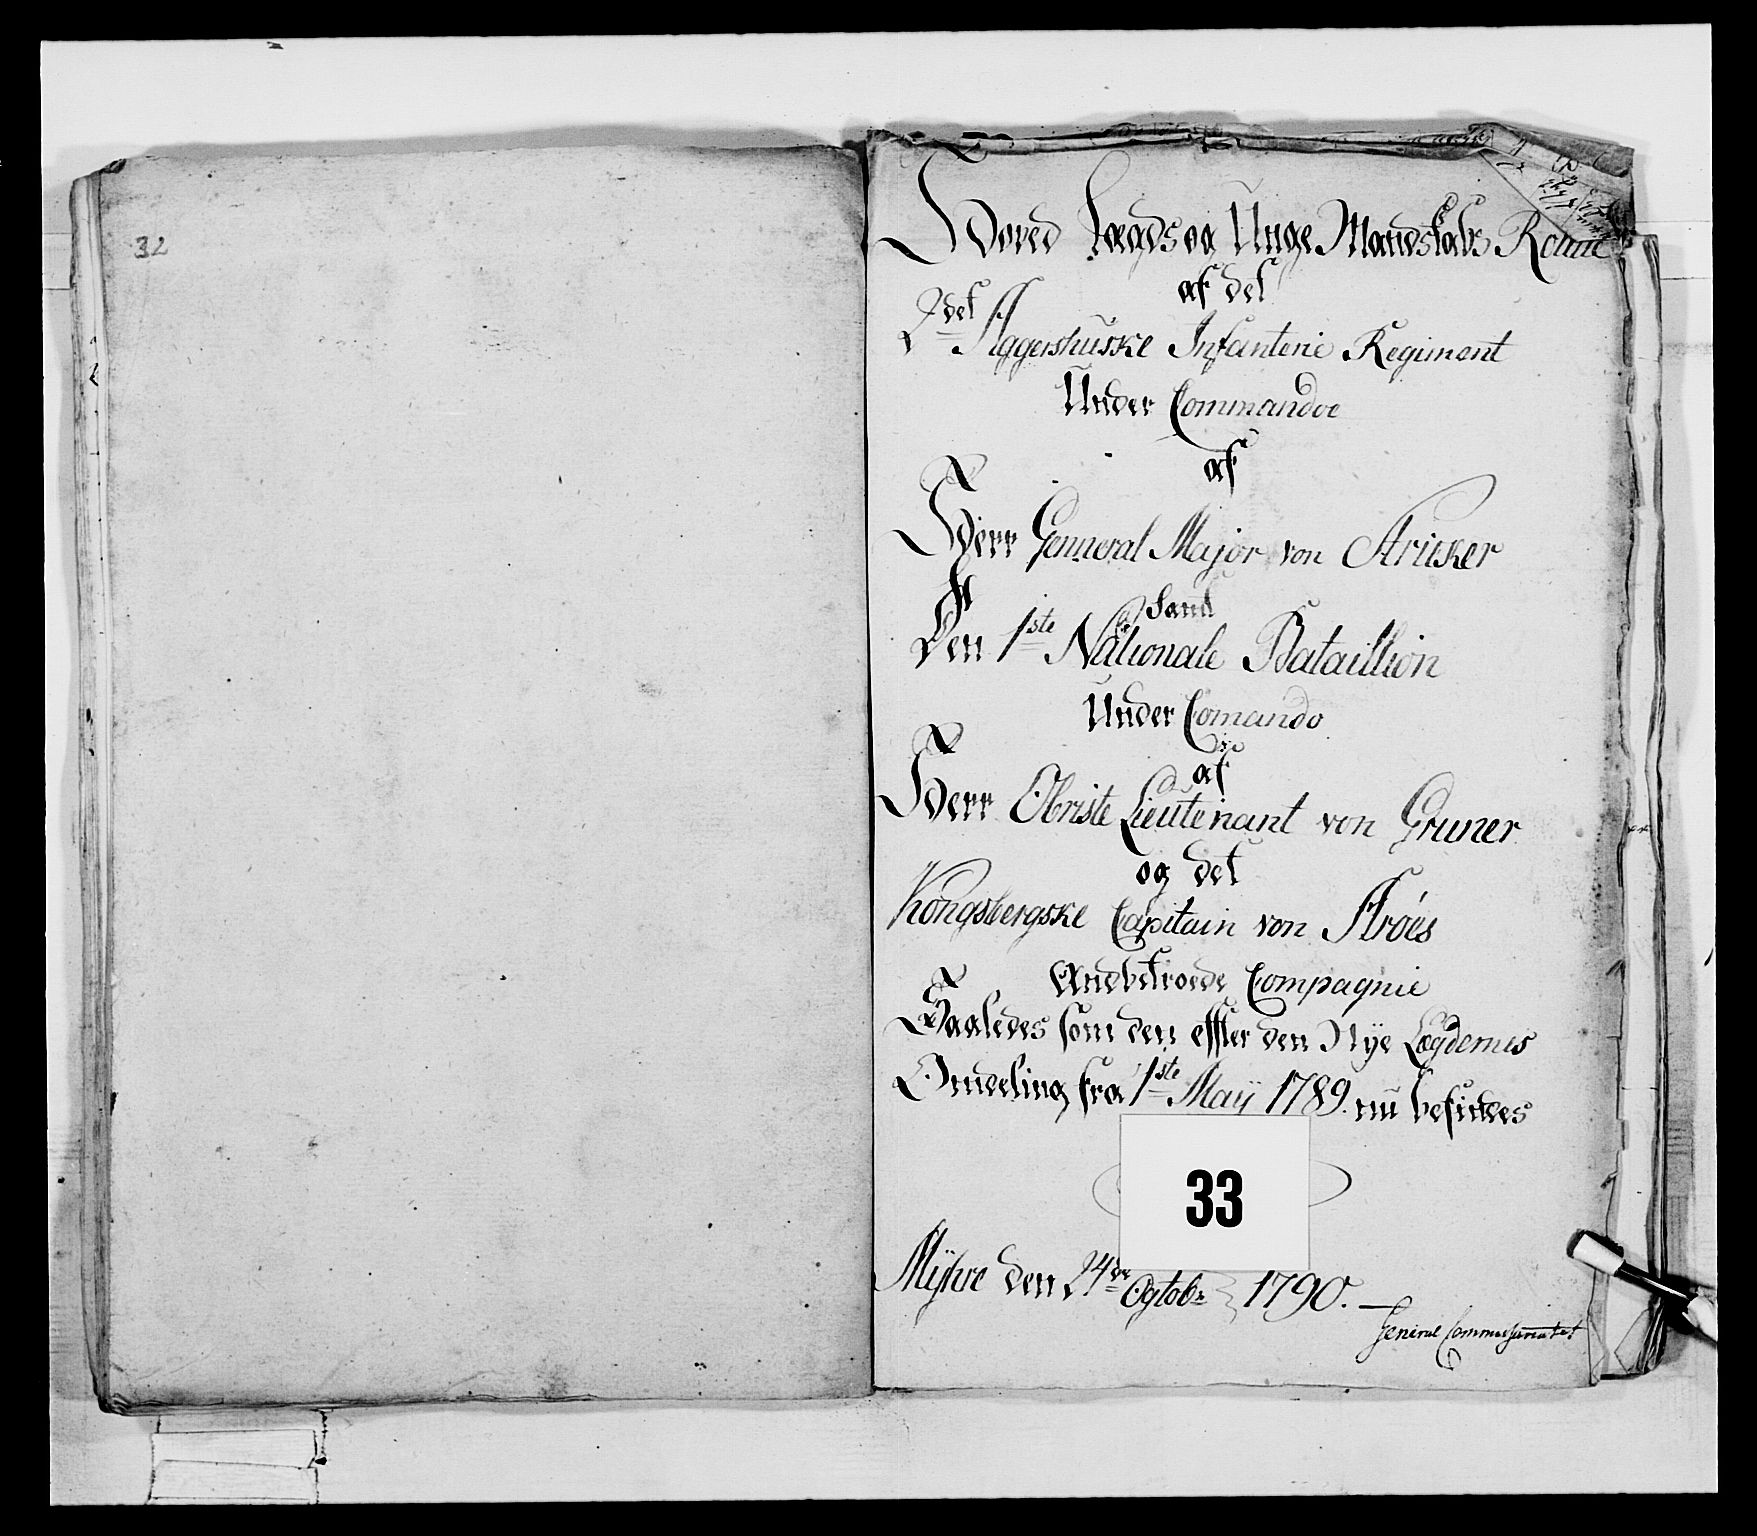 32
Hoved Lægds og Unge Mandskabs Roulle
af det
2det Aggershuuske Infanterie Regiment
Under Commandoe
af
Herr Genneral Major von Stricker
Samt
Den 1ste Nationale Bataillion
Under Comando
af
Herr Obriste Lieutenant von Gruner
og det
Kongsbergske Capitain von Ströes
Andbetroede Compagnie
Saaledes som den effter den Nÿe Lægdernes
Omdeling fra 1ste Maÿ 1789. nu befindes
33
Mÿhre den 24de Ogtobr 1790.
General Commissariatet